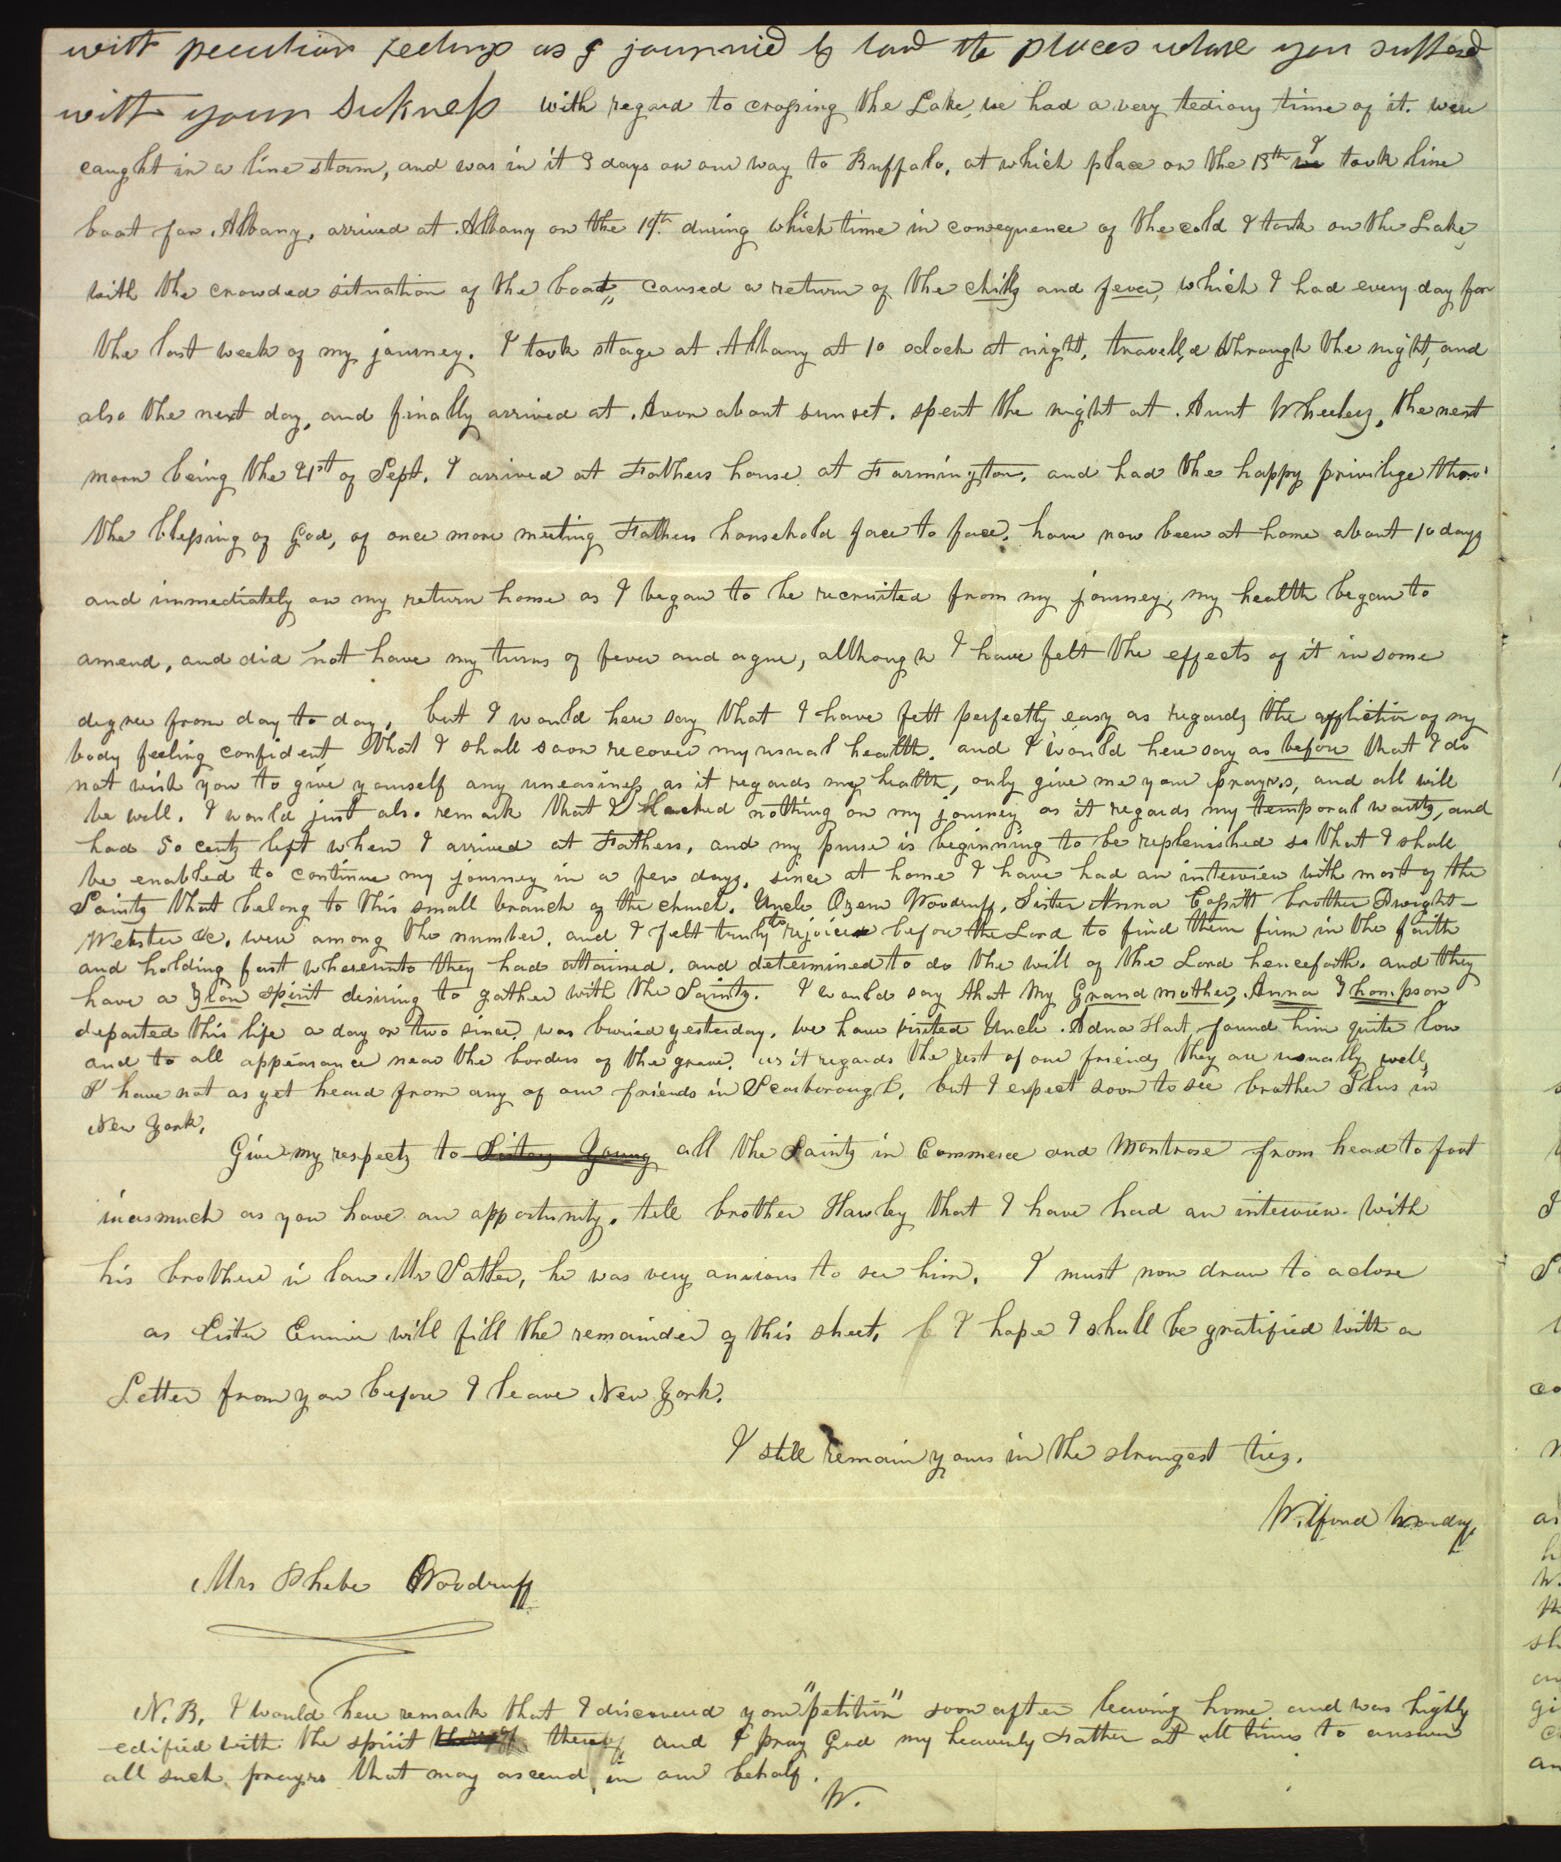 with peculiar feelings as I journied by land the places where you suffered
with your sickness with regard to crossing the Lake, we had a very tedious time of it. were
caught in a line storm, and was in it 3 days on our way to Buffalo, at which place on the 13th I took line
boat for Albany, arrived at Albany on the 19th during which time in consequence of the cold I took on the Lake,
with the crowded situation of the boat, caused a return of the chills and fever, which I had every day for
the last week of my journey. I took stage at Albany at 10 oclock at night, travelled through the night, and
also the next day, and finally arrived at Avon about sunset. spent the night at Aunt Wheelers, the next
morn being the 21st of Sept. I arrived at Fathers house at Farmington, and had the happy privilige thro'
the blessing of God, of once more meeting Fathers household face to face. have now been at home about 10 days
and immediately on my return home as I began to be recruited from my journey, my health began to
amend, and did not have my turns of fever and ague, although I have felt the effects of it in some
degree from day to day, but I would here say that I have felt perfectly easy as regards the affliction of my
body feeling confident that I shall soon recover my usual health. and I would here say as before that I do
not wish you to give yourself any uneasiness as it regards my health, only give me your prayrs, and all will
be well. I would just also remark that I lacked nothing on my journey as it regards my temporal wants, and
had 50 cents left when I arrived at Fathers, and my purse is beginning to be replenished so that I shall
be enabled to continue my journey in a few days. since at home I have had an interview with most of the
Saints that belong to this small branch of the church. Uncle Ozem Woodruff, Sister Anna Cossitt brother Dwight
Webster &c. were among the number, and I felt truly to rejoice before the Lord to find them firm in the faith
and holding fast whereinto they had attained, and determined to do the will of the Lord henceforth. and they
have a Zion spirit desiring to gather with the Saints. I would say that My Grand mother, Anna Thompson
departed this life a day or two since, was buried yesterday. we have visited Uncle Adna Hart, found him quite low
and to all appearance near the borders of the grave. as it regards the rest of our friends they are usually well,
I have not as yet heard from any of our friends in Scarborough, but I expect soon to see brother Ilus in
New York.
Give my respects to all the Saints in Commerce and Montrose from head to foot
inasmuch as you have an opportunity. tell brother Hawley that I have had an interview with
his brother in law Mr Salter, he was very anxious to see him. I must now draw to a close
as Sister Eunice will fill the remainder of this sheet. I hope I shall be gratified with a
Letter from you before I leave New York.
I still remain yours in the strongest ties.
Wilford Woodruff
Mrs Phebe Woodruff
N.B. I would here remark that I discovered your "petition" soon after leaving home and was highly
edified with the spirit thereof and I pray God my heavenly Father at all times to answer
all such prayrs that may ascend in our behalf.
W.